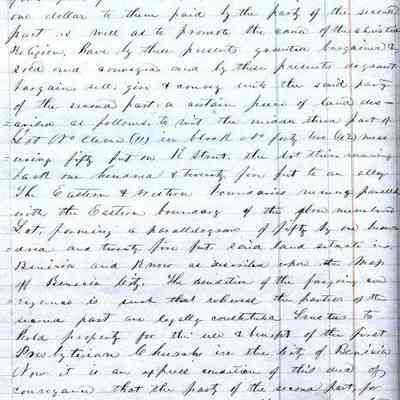 one dollar to them paid by the party of the second
part as well as to promote the cause of the christian
Religion, Have by these presents granted bargained &
sold and conveyed and by these presents do grant
bargain sell, give & convey unto the said party
of the second part a certain piece of land des-
cribed as follows to wit the middle third part of
Lot No eleven (11) in block No forty two (42) meas-
uring fifty feet on K Street, the lot then running
back one hundred & twenty five feet to an alley
The Eastern & Western boundaries running parallel
with the Eastern boundary of the above numbered
Lot, forming a parallelogram of fifty by one hun-
dred and twenty five feet. said land situate in
Benicia and Known as described upon the Map
of Benicia City. The condition of the forgoing con
veyance is such that whereas the parties of the
second part are legally constituted Trustees to
hold property for the use & benefit of the first
Presbyterian Church in the City of Benicia
Now it is an express condition of this deed of
conveyance that the party of the second part, for